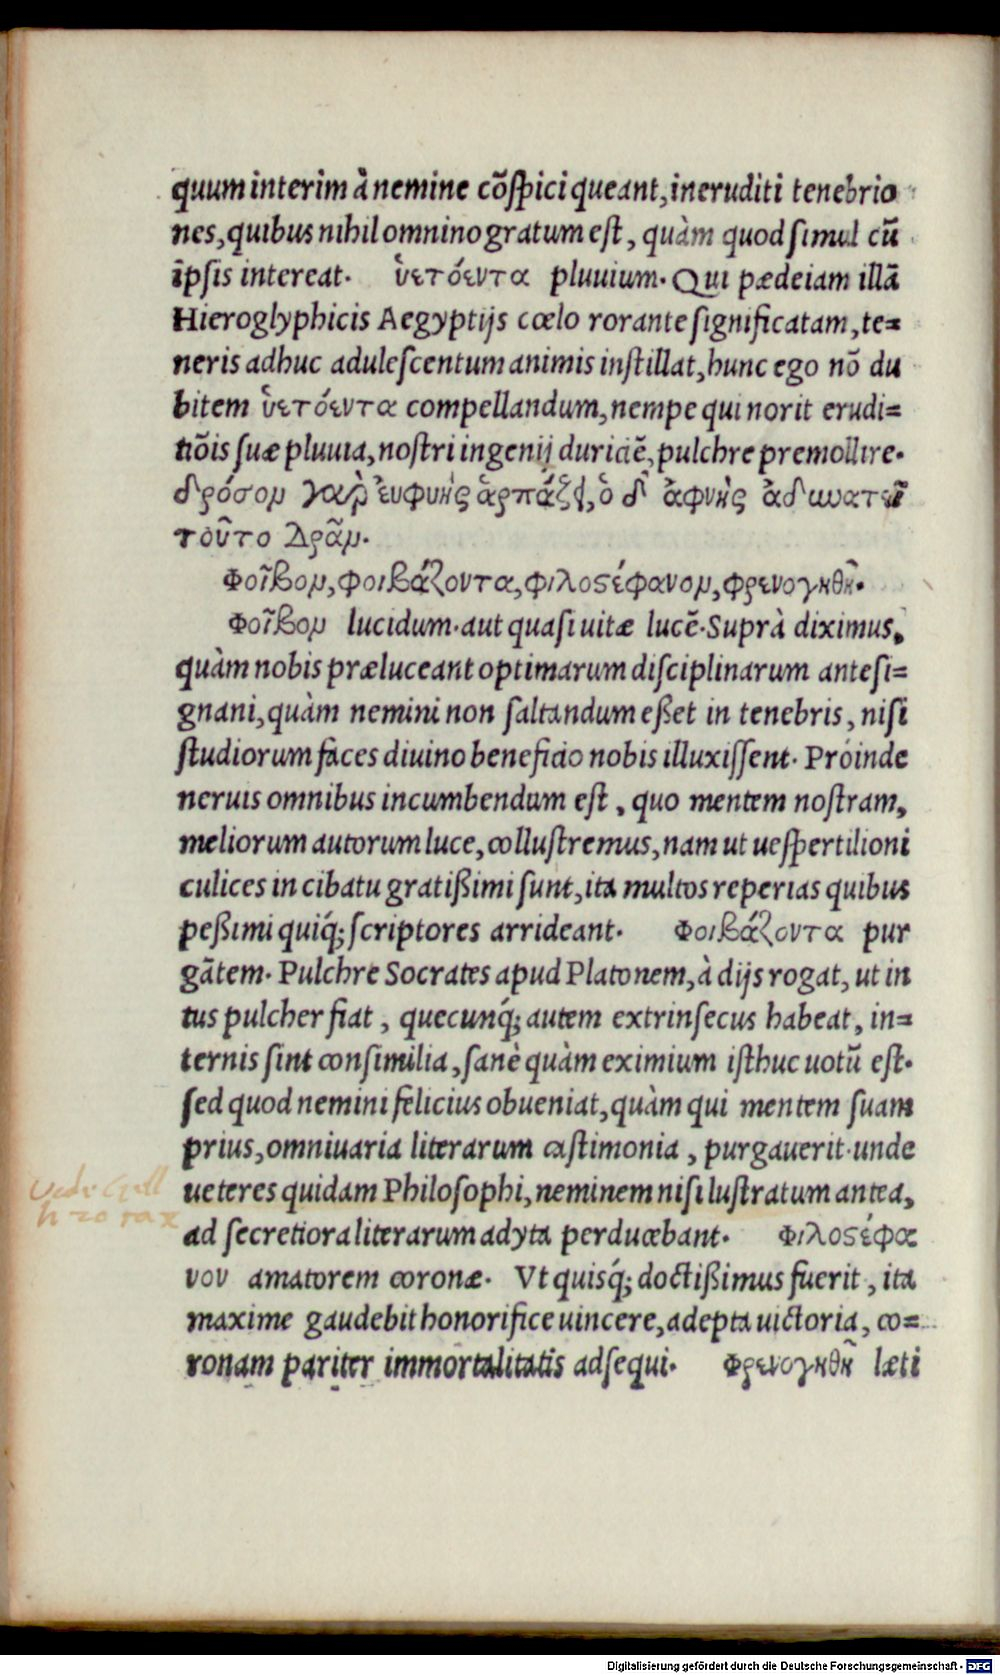 quum interim à nemine cōſpici queant, ineruditi tenebrio
nes, quibus nihil omnino gratum eſt, quàm quod ſimul cū
īpſis intereat. ὑετόεντα pluuium. Qui pædeiam illā
Hieroglyphicis Aegyptijs cœlo rorante ſignificatam, te=
neris adhuc aduleſcentum animis inſtillat, hunc ego nō du
bitem ὑετόεντα compellandum, nempe qui norit erudi=
tiōis ſuæ pluuia, noſtri ingenij duriciē, pulchre premollire.
δρόσομ γαρ ἐυφυὴς ἁρπάζει, ὁ δ' ἀφυὴς ἀδυνατεῖ
τοῦτο Δρᾶμ.
Φοῖβομ, φοιβάζοντα, φιλοϛέφανομ, φρενογηθῆ.
Φοῖβομ lucidum. aut quaſi uitæ lucē. Suprà diximus,
quàm nobis præluceant optimarum diſciplinarum anteſi=
gnani, quàm nemini non ſaltandum eßet in tenebris, niſi
ſtudiorum faces diuino beneficio nobis illuxiſſent. Próinde
neruis omnibus incumbendum eſt, quo mentem noſtram,
meliorum autorum luce, colluſtremus, nam ut ueſpertilioni
culices in cibatu gratißimi ſunt, ita multos reperias quibus
peßimi quiq́; ſcriptores arrideant. Φοιβάζοντα pur
gātem. Pulchre Socrates apud Platonem, à dijs rogat, ut in
tus pulcher fiat, quecunq́; autem extrinſecus habeat, in=
ternis ſint conſimilia, ſanè quàm eximium iſthuc uotū eſt.
ſed quod nemini felicius obueniat, quàm qui mentem ſuam
prius, omniuaria literarum caſtimonia, purgauerit. unde
ueteres quidam Philoſophi, neminem niſi luſtratum antea,
ad ſecretiora literarum adyta perducebant. Φιλοϛέφα
νον amatorem coronæ. Vt quiſq́; doctißimus fuerit, ita
maxime gaudebit honorifice uincere, adepta uictoria, co=
ronam pariter immortalitatis adſequi. Φρενογηθῆ læti
Digitalisierung gefördert durch die Deutsche Forschungsgemeinschaft - DFG